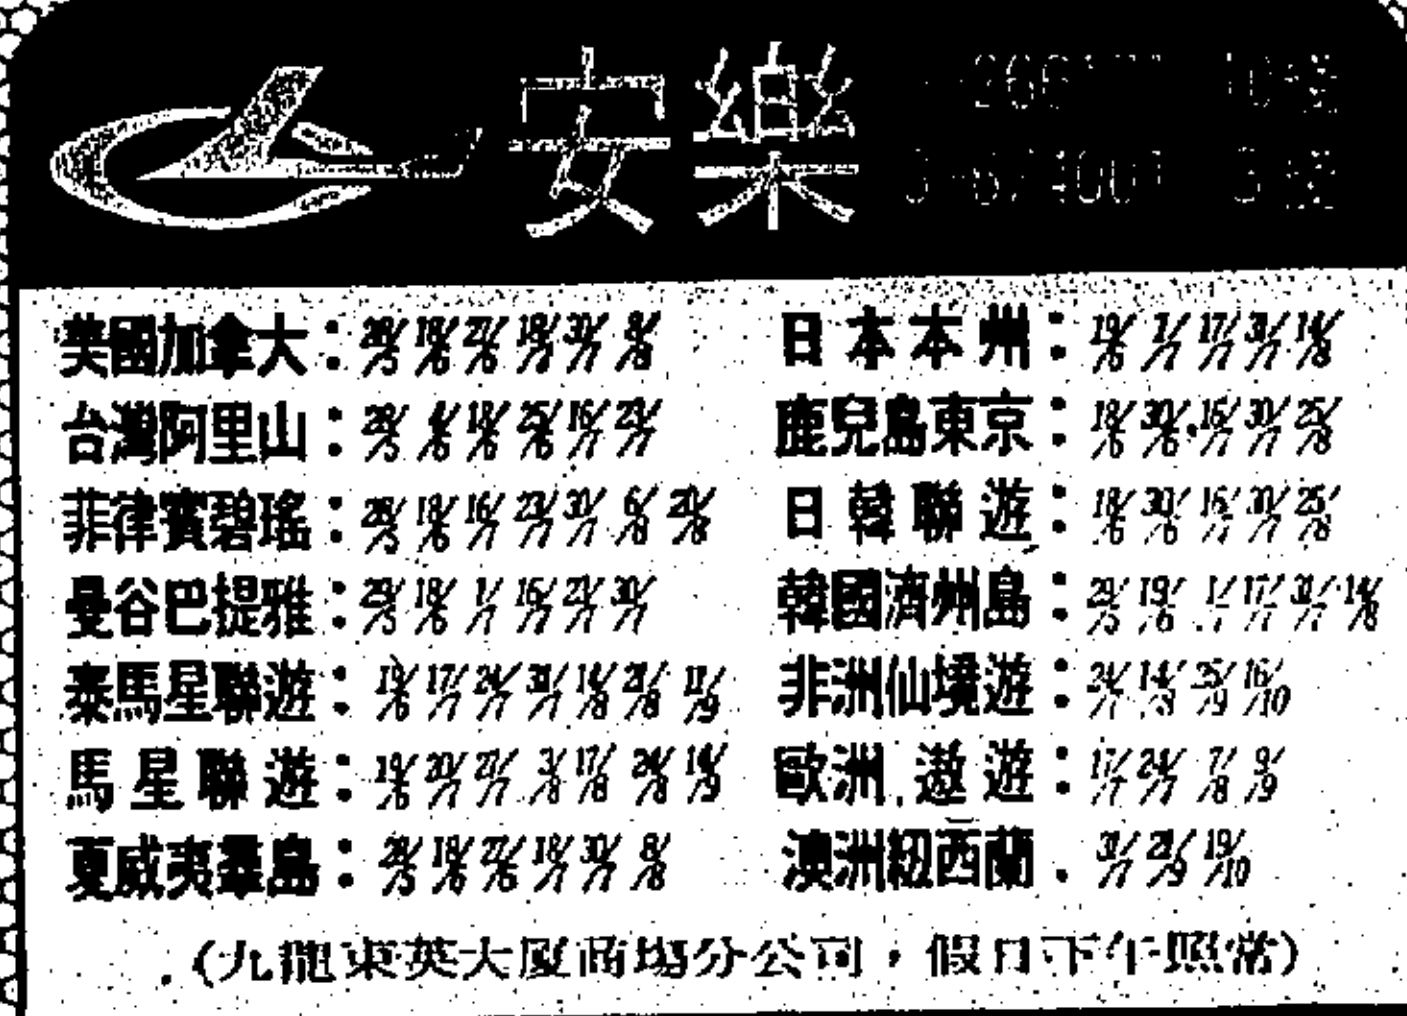 安樂
美國加拿大：28/5 18/6 27/6 18/7 30/7 8/8
台灣阿里山：28/5 4/6 18/6 25/6 16/7 23/7
菲律賓碧瑤：28/5 18/6 16/7 23/7 30/7 6/8 20/8
曼谷巴提雅：29/5 18/6 1/7 16/7 23/7 30/7
泰馬星聯遊：19/6 17/7 24/7 31/7 14/8 21/8 11/9
馬星聯遊：19/6 20/7 27/7 3/8 17/8 24/8 14/9
夏威夷羣島：28/5 18/6 27/6 18/7 30/7 8/8
日本本州：19/6 1/7 17/7 31/7 14/8
鹿兒島東京：18/6 30/6 16/7 30/7 25/8
日韓聯遊：18/6 30/6 16/7 30/7 25/8
韓國濟州島：29/5 19/6 1/7 17/7 31/7 14/8
非洲仙境遊：24/7 14/8 25/9 16/10
歐洲遨遊：17/7 24/7 7/8 9/9
澳洲紐西蘭：31/7 21/9 19/10
（九龍東英大厦商場分公司，假日下午照常）